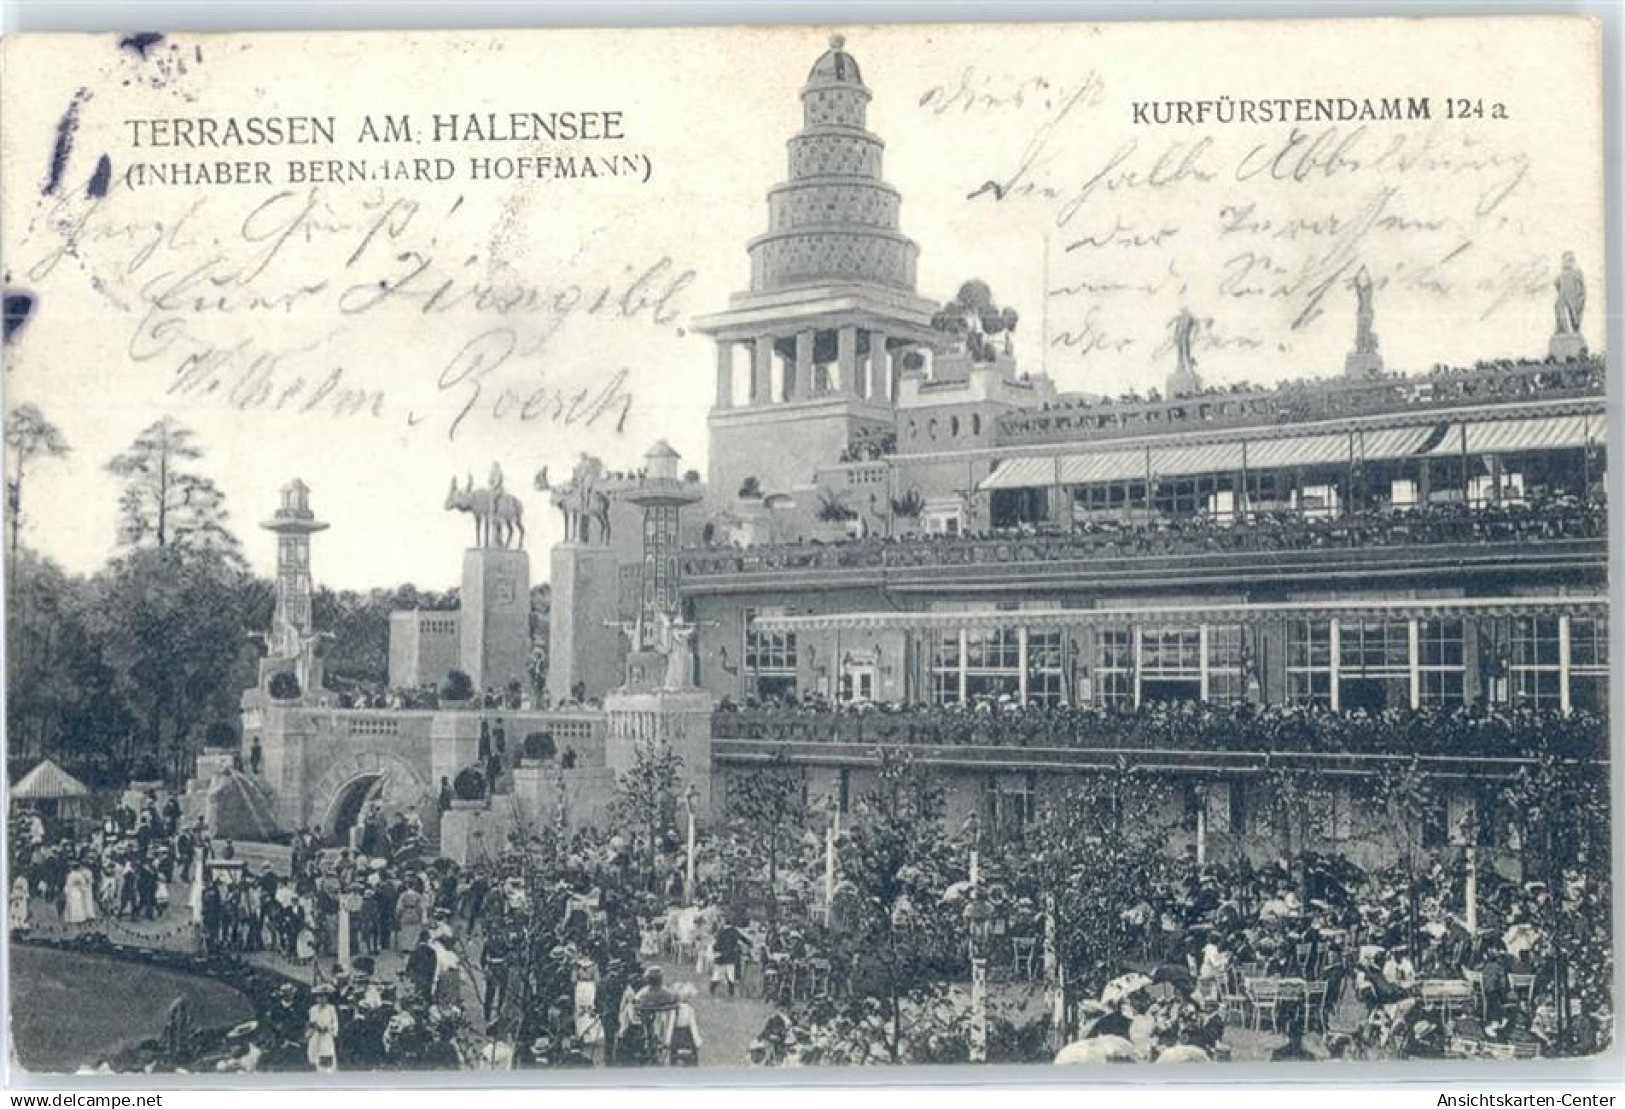 TERRASSEN AM HALENSEE
(INHABER BERNHARD HOFFMANN)
KURFÜRSTENDAMM 124 a
Herzl. Gruß!
Euer
Wilhelm Roesch
Dies ist
Die halbe Abbildung
der Terassen
und Südseite ist
der
Ansichtskarten-Center